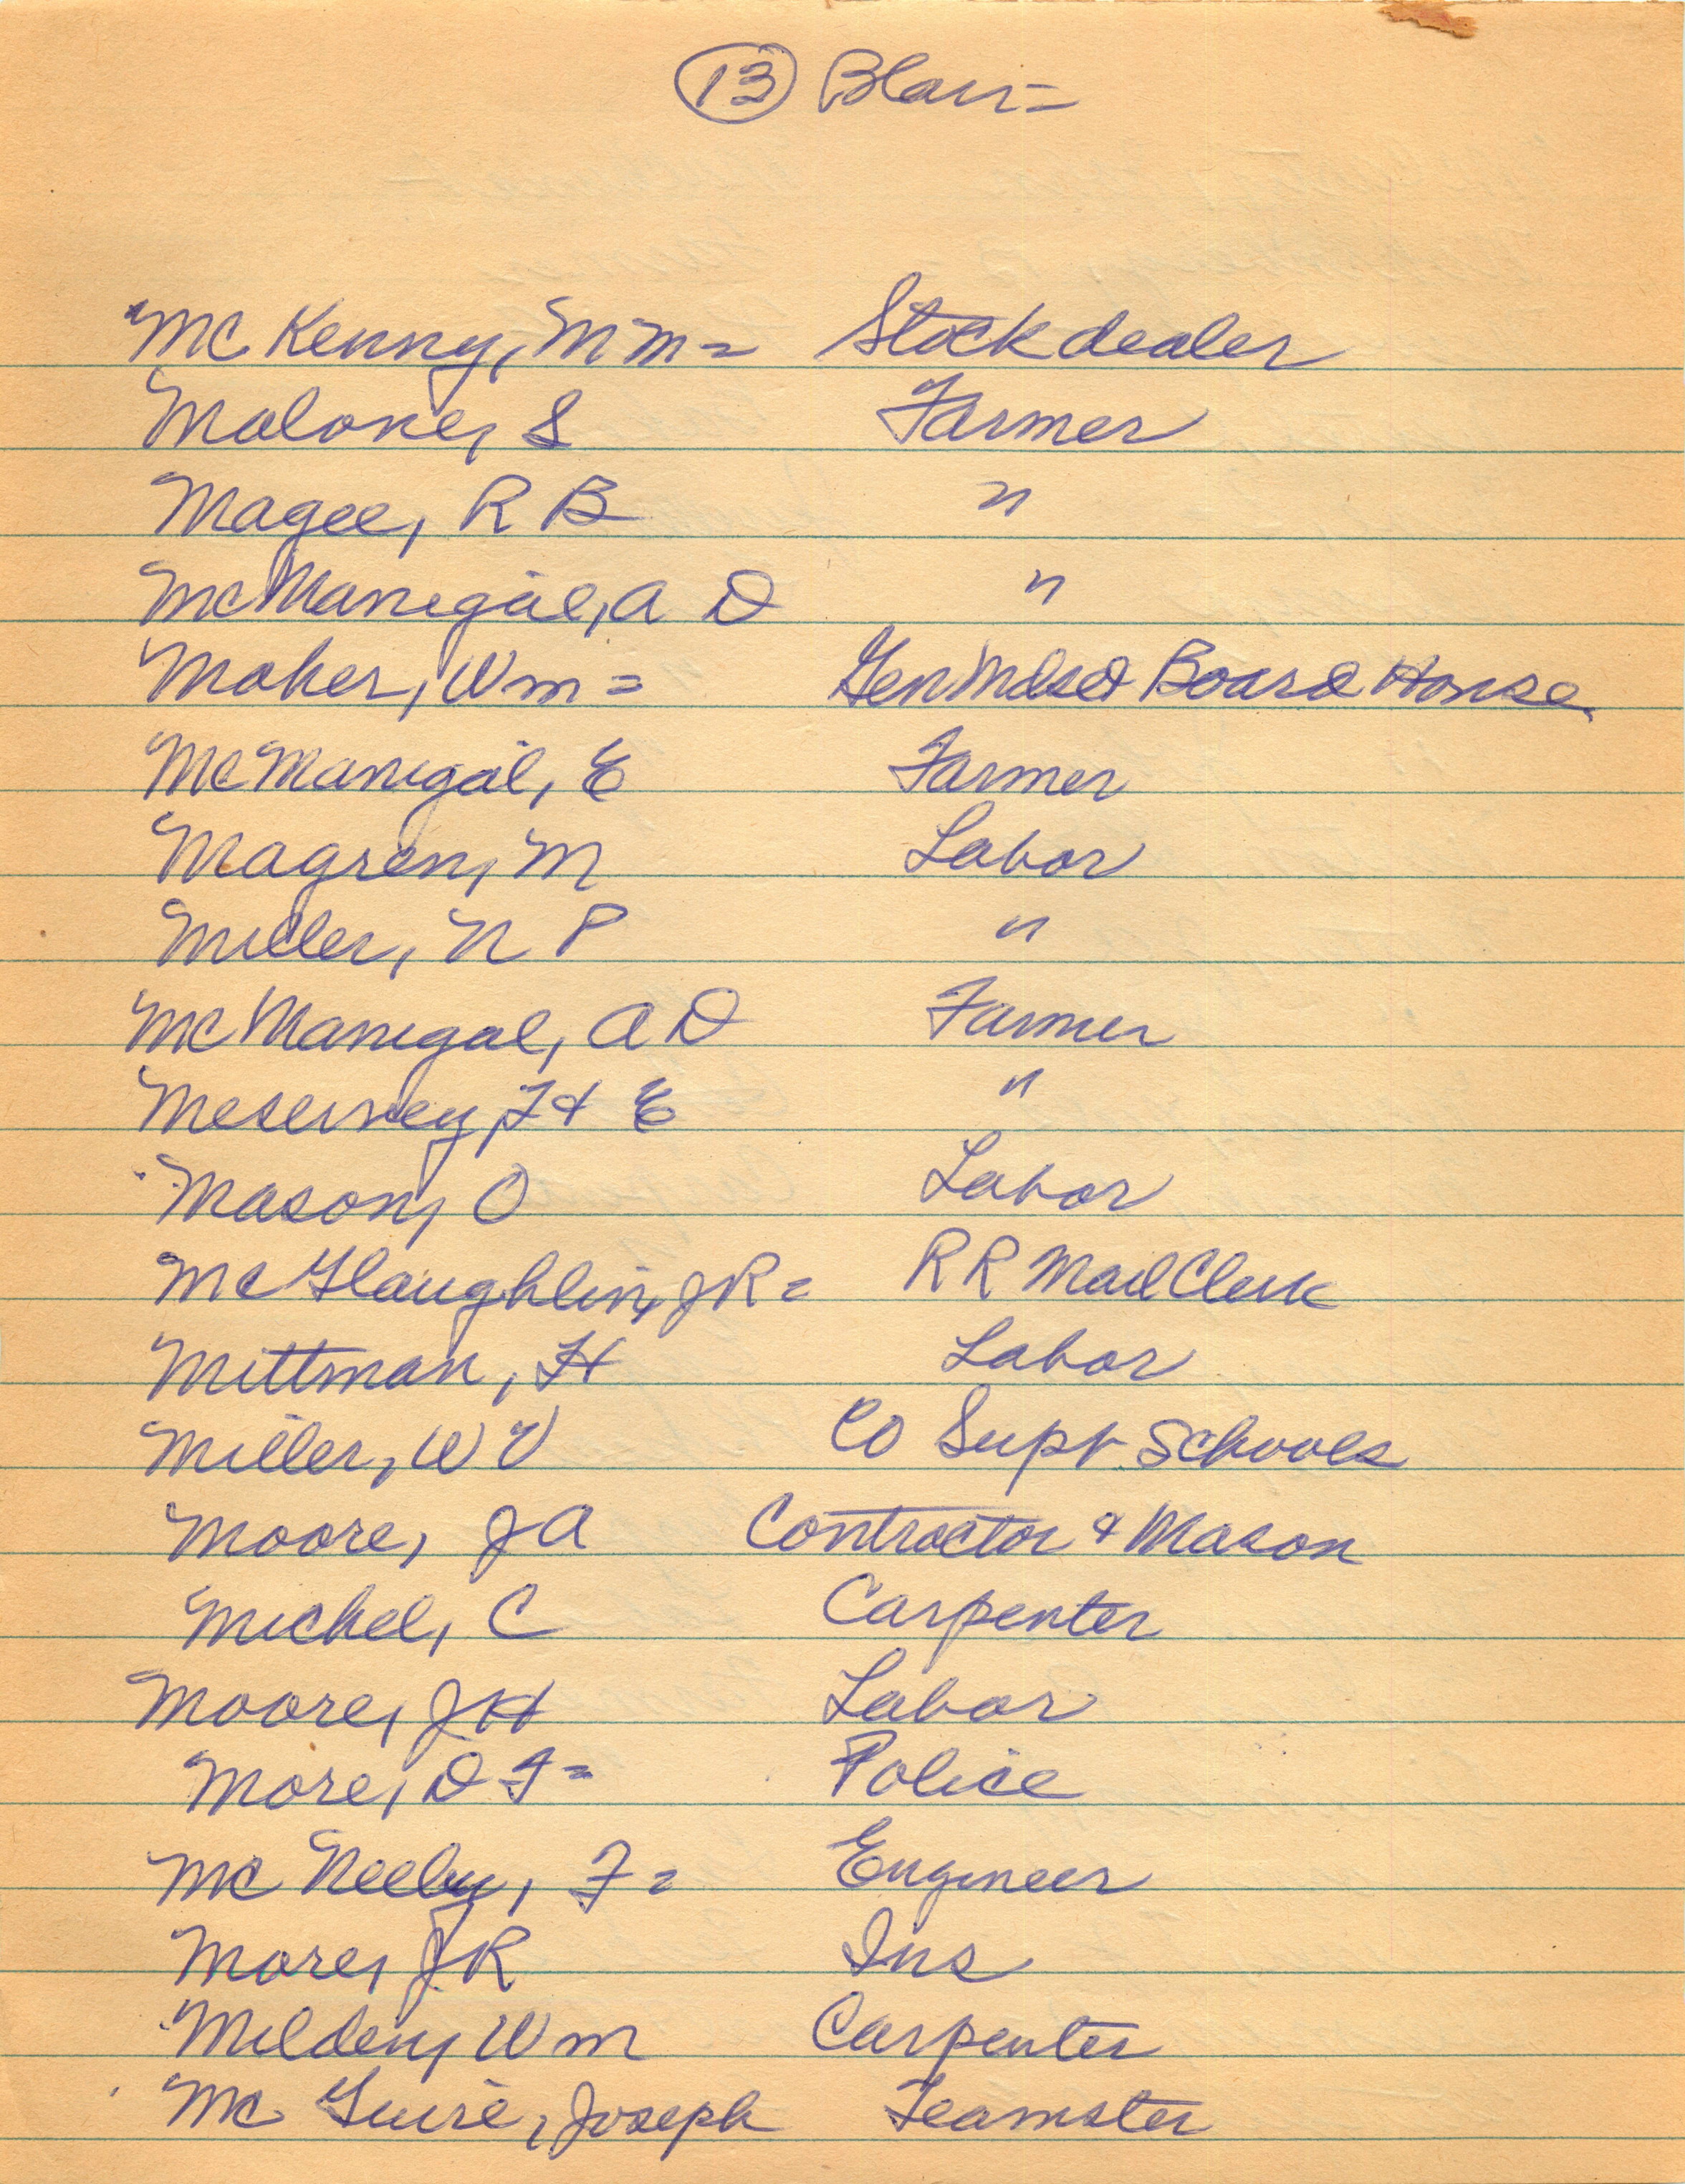 13 Blair =
McKenny, M M = Stock dealer
Malone, S Farmer
Magee, R B "
McManigal, A D "
Maher, Wm = Gen Mdse & Board House
McManigal, E Farmer
Magren, M Labor
Miller, N P "
McManigal, A D Farmer
Meservey, F & E "
Mason, O Labor
McGlaughlin, J R = R R Mail Clerk
Mittman, H Labor
Miller, W V Co Supt Schools
Moore, J A Contractor & Mason
Michel, C Carpenter
Moore, J H Labor
More, D F = Police
Mc Neely, F = Engineer
More, J R Ins
Milden, Wm Carpenter
Mc Guire, Joseph Teamster